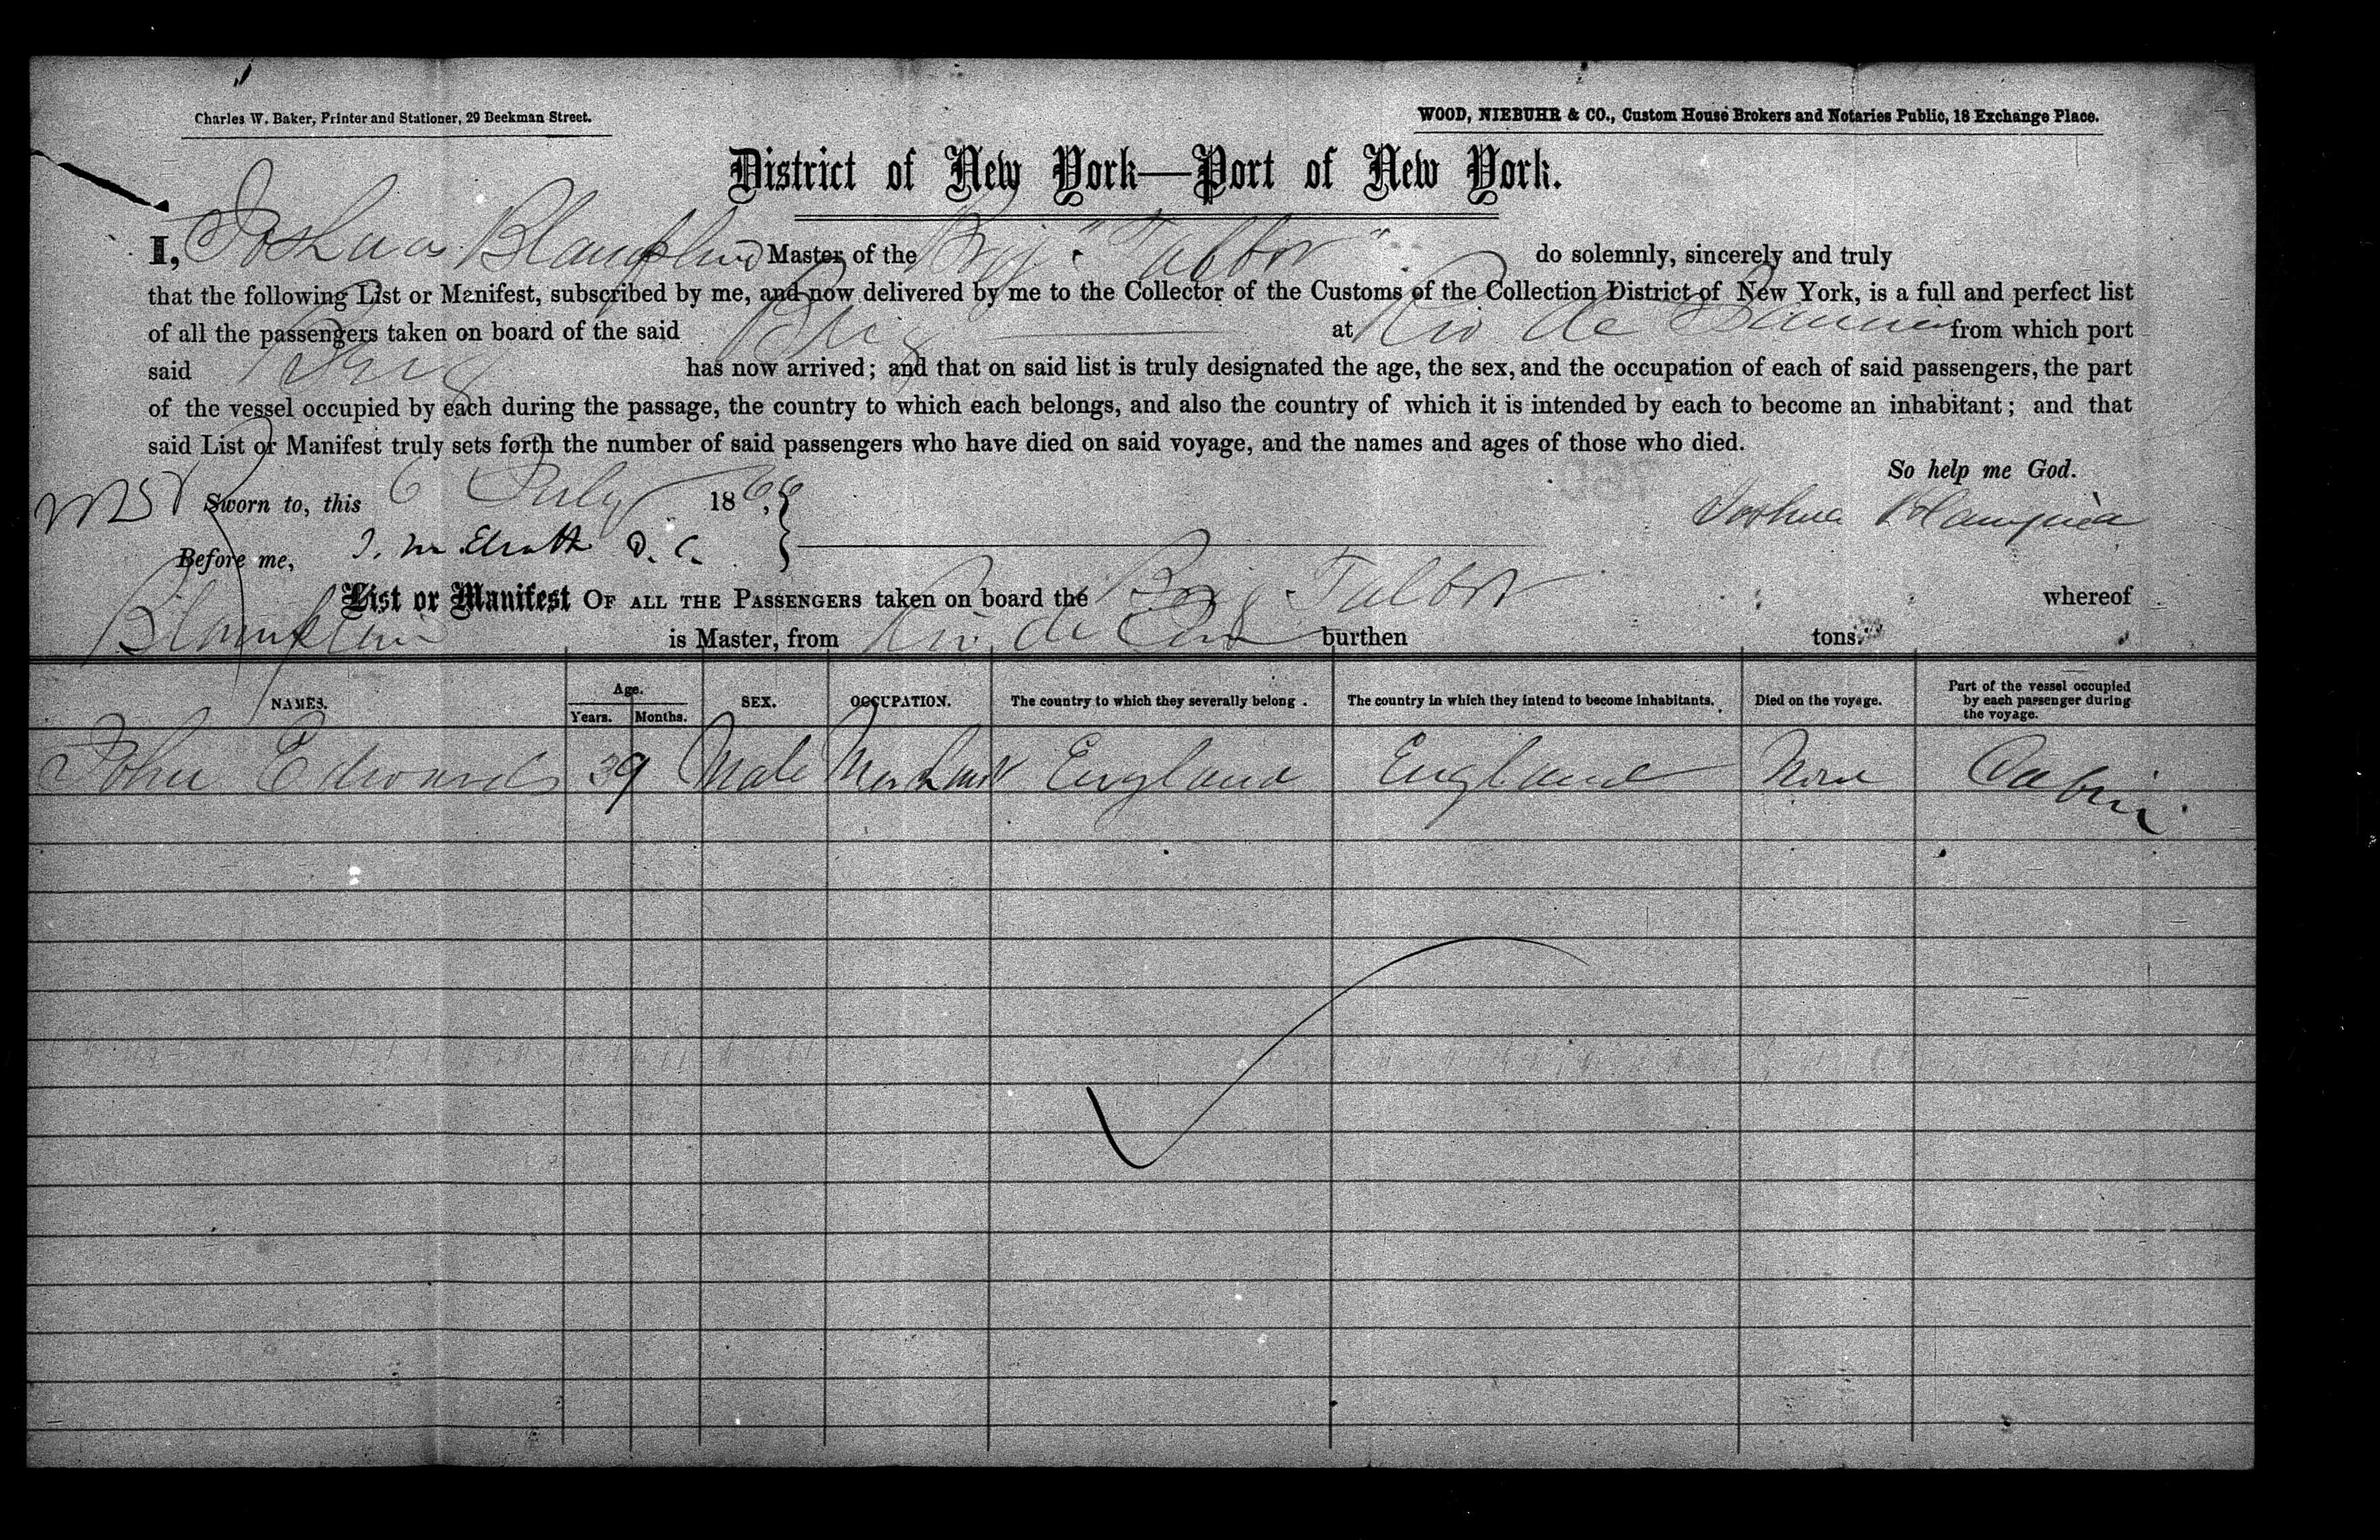 Charles W. Baker, Printer and Stationer, 29 Beekman Street.
WOOD, NIEBUHR & CO., Custom House Brokers and Notaries Public, 18 Exchange Place.
District of New York—Port of New York.
I, Joshua Master of the Brig "Talbot" do solemnly, sincerely and truly
that the following List or Manifest, subscribed by me, and now delivered by me to the Collector of the Customs of the Collection District of New York, is a full and perfect list
of all the passengers taken on board of the said Brig at Rio de from which port
said Brig has now arrived; and that on said list is truly designated the age, the sex, and the occupation of each of said passengers, the part
of the vessel occupied by each during the passage, the country to which each belongs, and also the country of which it is intended by each to become an inhabitant; and that
said List or Manifest truly sets forth the number of said passengers who have died on said voyage, and the names and ages of those who died.
So help me God.
Sworn to, this 6 July 1866,
Joshua
Before me, D. C.
List or Manifest OF ALL THE PASSENGERS taken on board the Brig Talbot whereof
is Master, from Rio de burthen tons.
NAMES. Age. Years. Months. SEX. OCCUPATION. The country to which they severally belong. The country in which they intend to become inhabitants. Died on the voyage. Part of the vessel occupied by each passenger during the voyage.
John Edwards 39 Male Merchant England England None Cabin